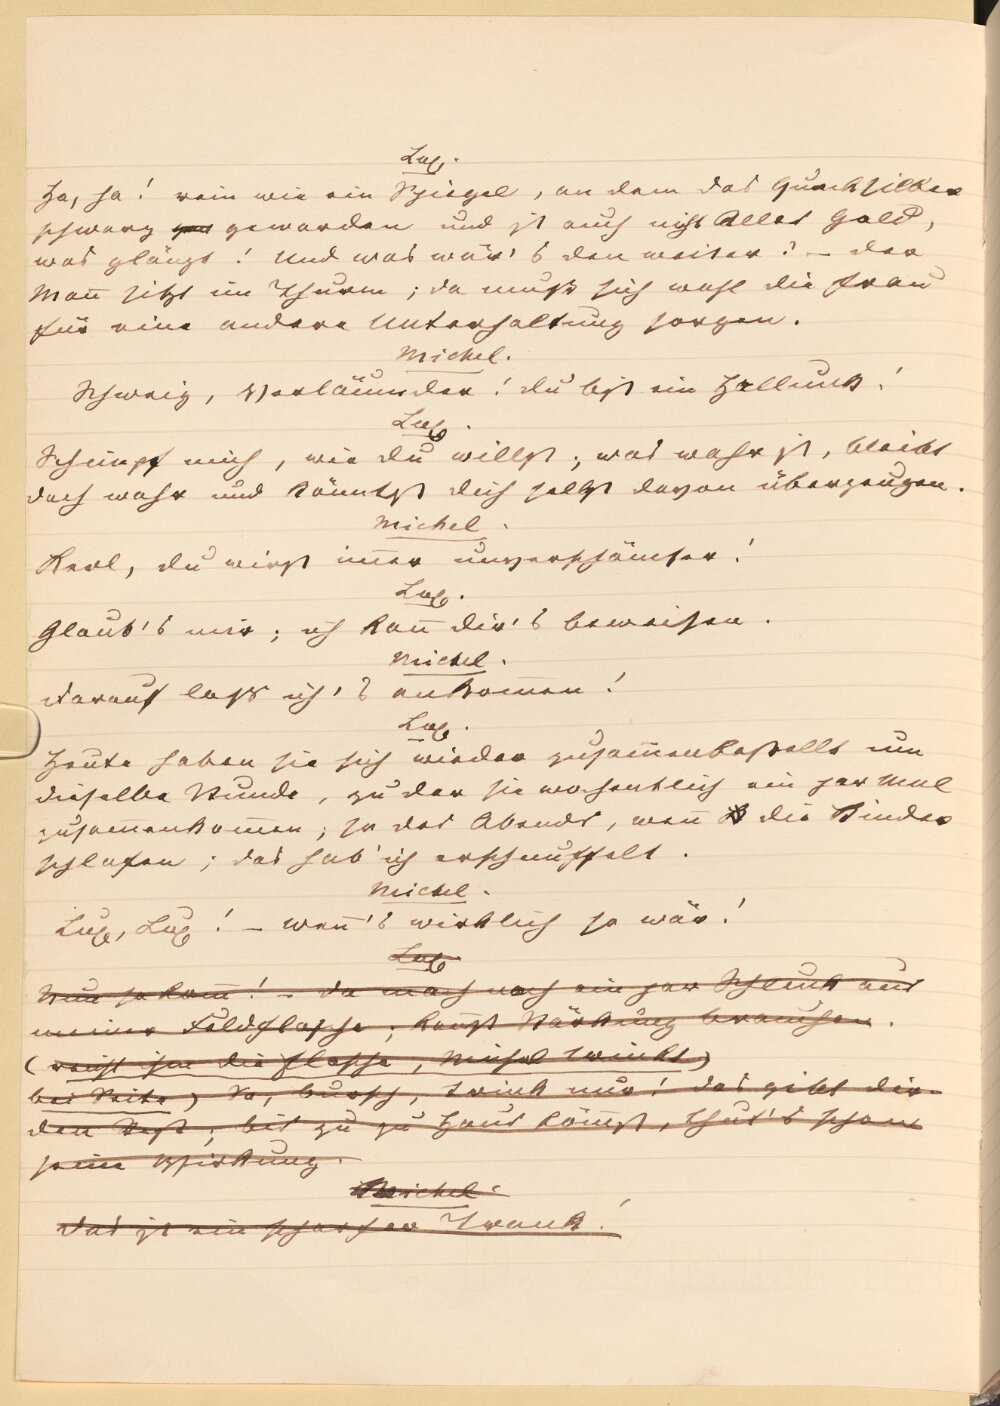 Lux.
Ha, ha! rein wie ein Spiegel, an dem das Quecksilber
schwarz geworden und ist auch nicht Alles Gold,
was glänzt! Und was wär's den weiter? – der
Mañ sitzt im Thurm; da muß sich wohl die Frau
für eine andere Unterhaltung sorgen.
Michel.
Schweig, Verläumder! du bist ein Hallunk!
Lux.
Schimpf mich, wie du willst; was wahr ist, bleibt
doch wahr und köñtest dich selbst davon überzeugen.
Michel.
Kerl, du wirst im̃er unverschämter!
Lux.
Glaub's mir; ich kañ dir's beweisen.
Michel.
Darauf laß ich's ankom̃en!
Lux.
Heute haben sie sich wieder zusam̃enbestellt um
dieselbe Stunde, zu der sie wochentlich ein par mal
zusam̃enkom̃en; so des Abends, weñ die Kinder
schlafen; das hab' ich erschnuffelt.
Michel.
Lux, Lux! – weñ's wirklich so wär!
Lux
Nun so kom̃! – da mach noch ein par Schluck aus
meiner Feldflasche; kañst Stärkung brauchen.
(reicht ihm die Flasche, Michel trinkt)
bei Seite) So, Bursch, trink nur! das gibt dir
den Rest; bis zu zu Haus köm̃st, thut's schon
seine Wirkung.
Michel.
Das ist ein scharfer Trank!